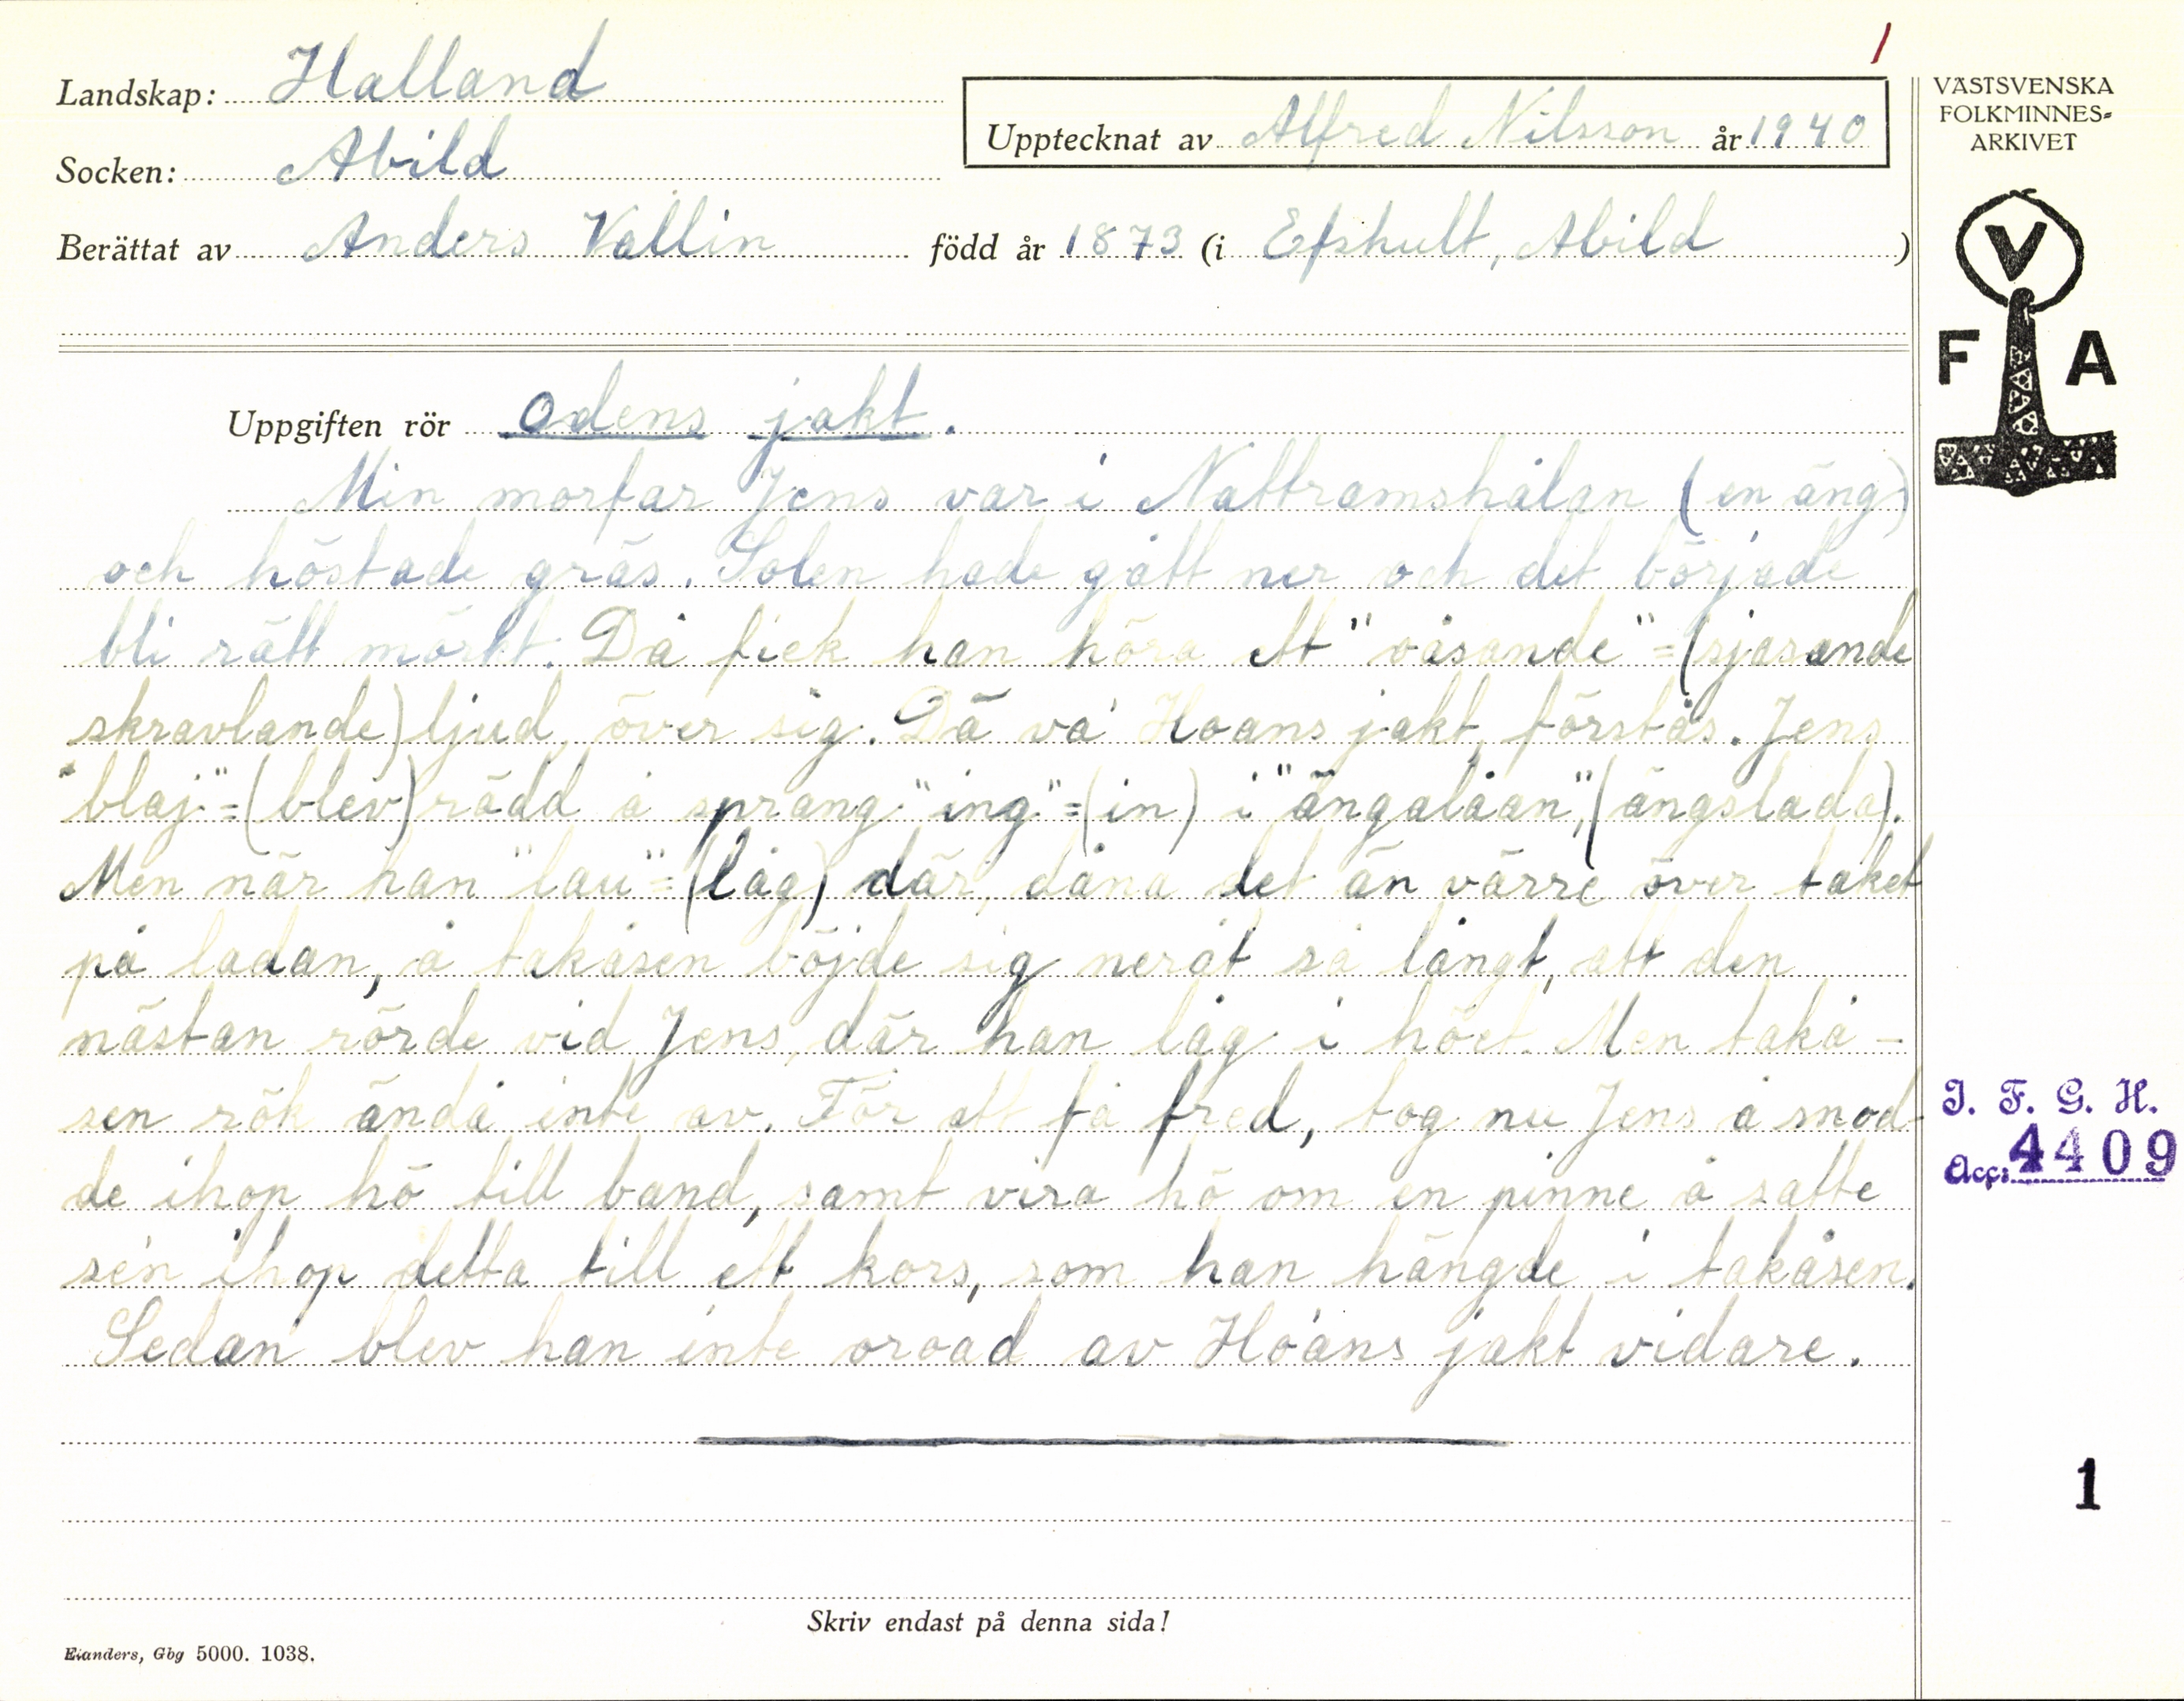 Landskap: Halland
Socken: Abild
Berättat av Anders Vallin född år 1873 (i Efshult, Abild)
Upptecknat av Alfred Nilsson år 1940
/
VÄSTSVENSKA
FOLKMINNES-
ARKIVET
V
F A
Uppgiften rör Odens jakt.
Min morfar Jens var i Nattramshålan (en äng)
och höstade gräs. Solen hade gått ner och det började
bli rätt mörkt. Då fick han höra ett "våsande" = (sjasande
skravlande) ljud, över sig. Dä va' Hoans jakt, förstås. Jens
"blaj" = (blev) rädd å sprang "ing" = (in) i "ängalåan", (ängslada).
Men när han "lau" = (låg) där, dåna det än värre över taket
på ladan, å takåsen böjde sig neråt så långt, att den
nästan rörde vid Jens, där han låg i höet. Men takå-
sen rök ändå inte av. För att få fred, tog nu Jens å snod-
de ihop hö till band, samt vira hö om en pinne å satte
sen ihop detta till ett kors, som han hängde i takåsen.
Sedan blev han inte oroad av Hoans jakt vidare.
I. F. G. H.
Acc: 4409
1
Skriv endast på denna sida!
Elanders, Gbg 5000. 1038.